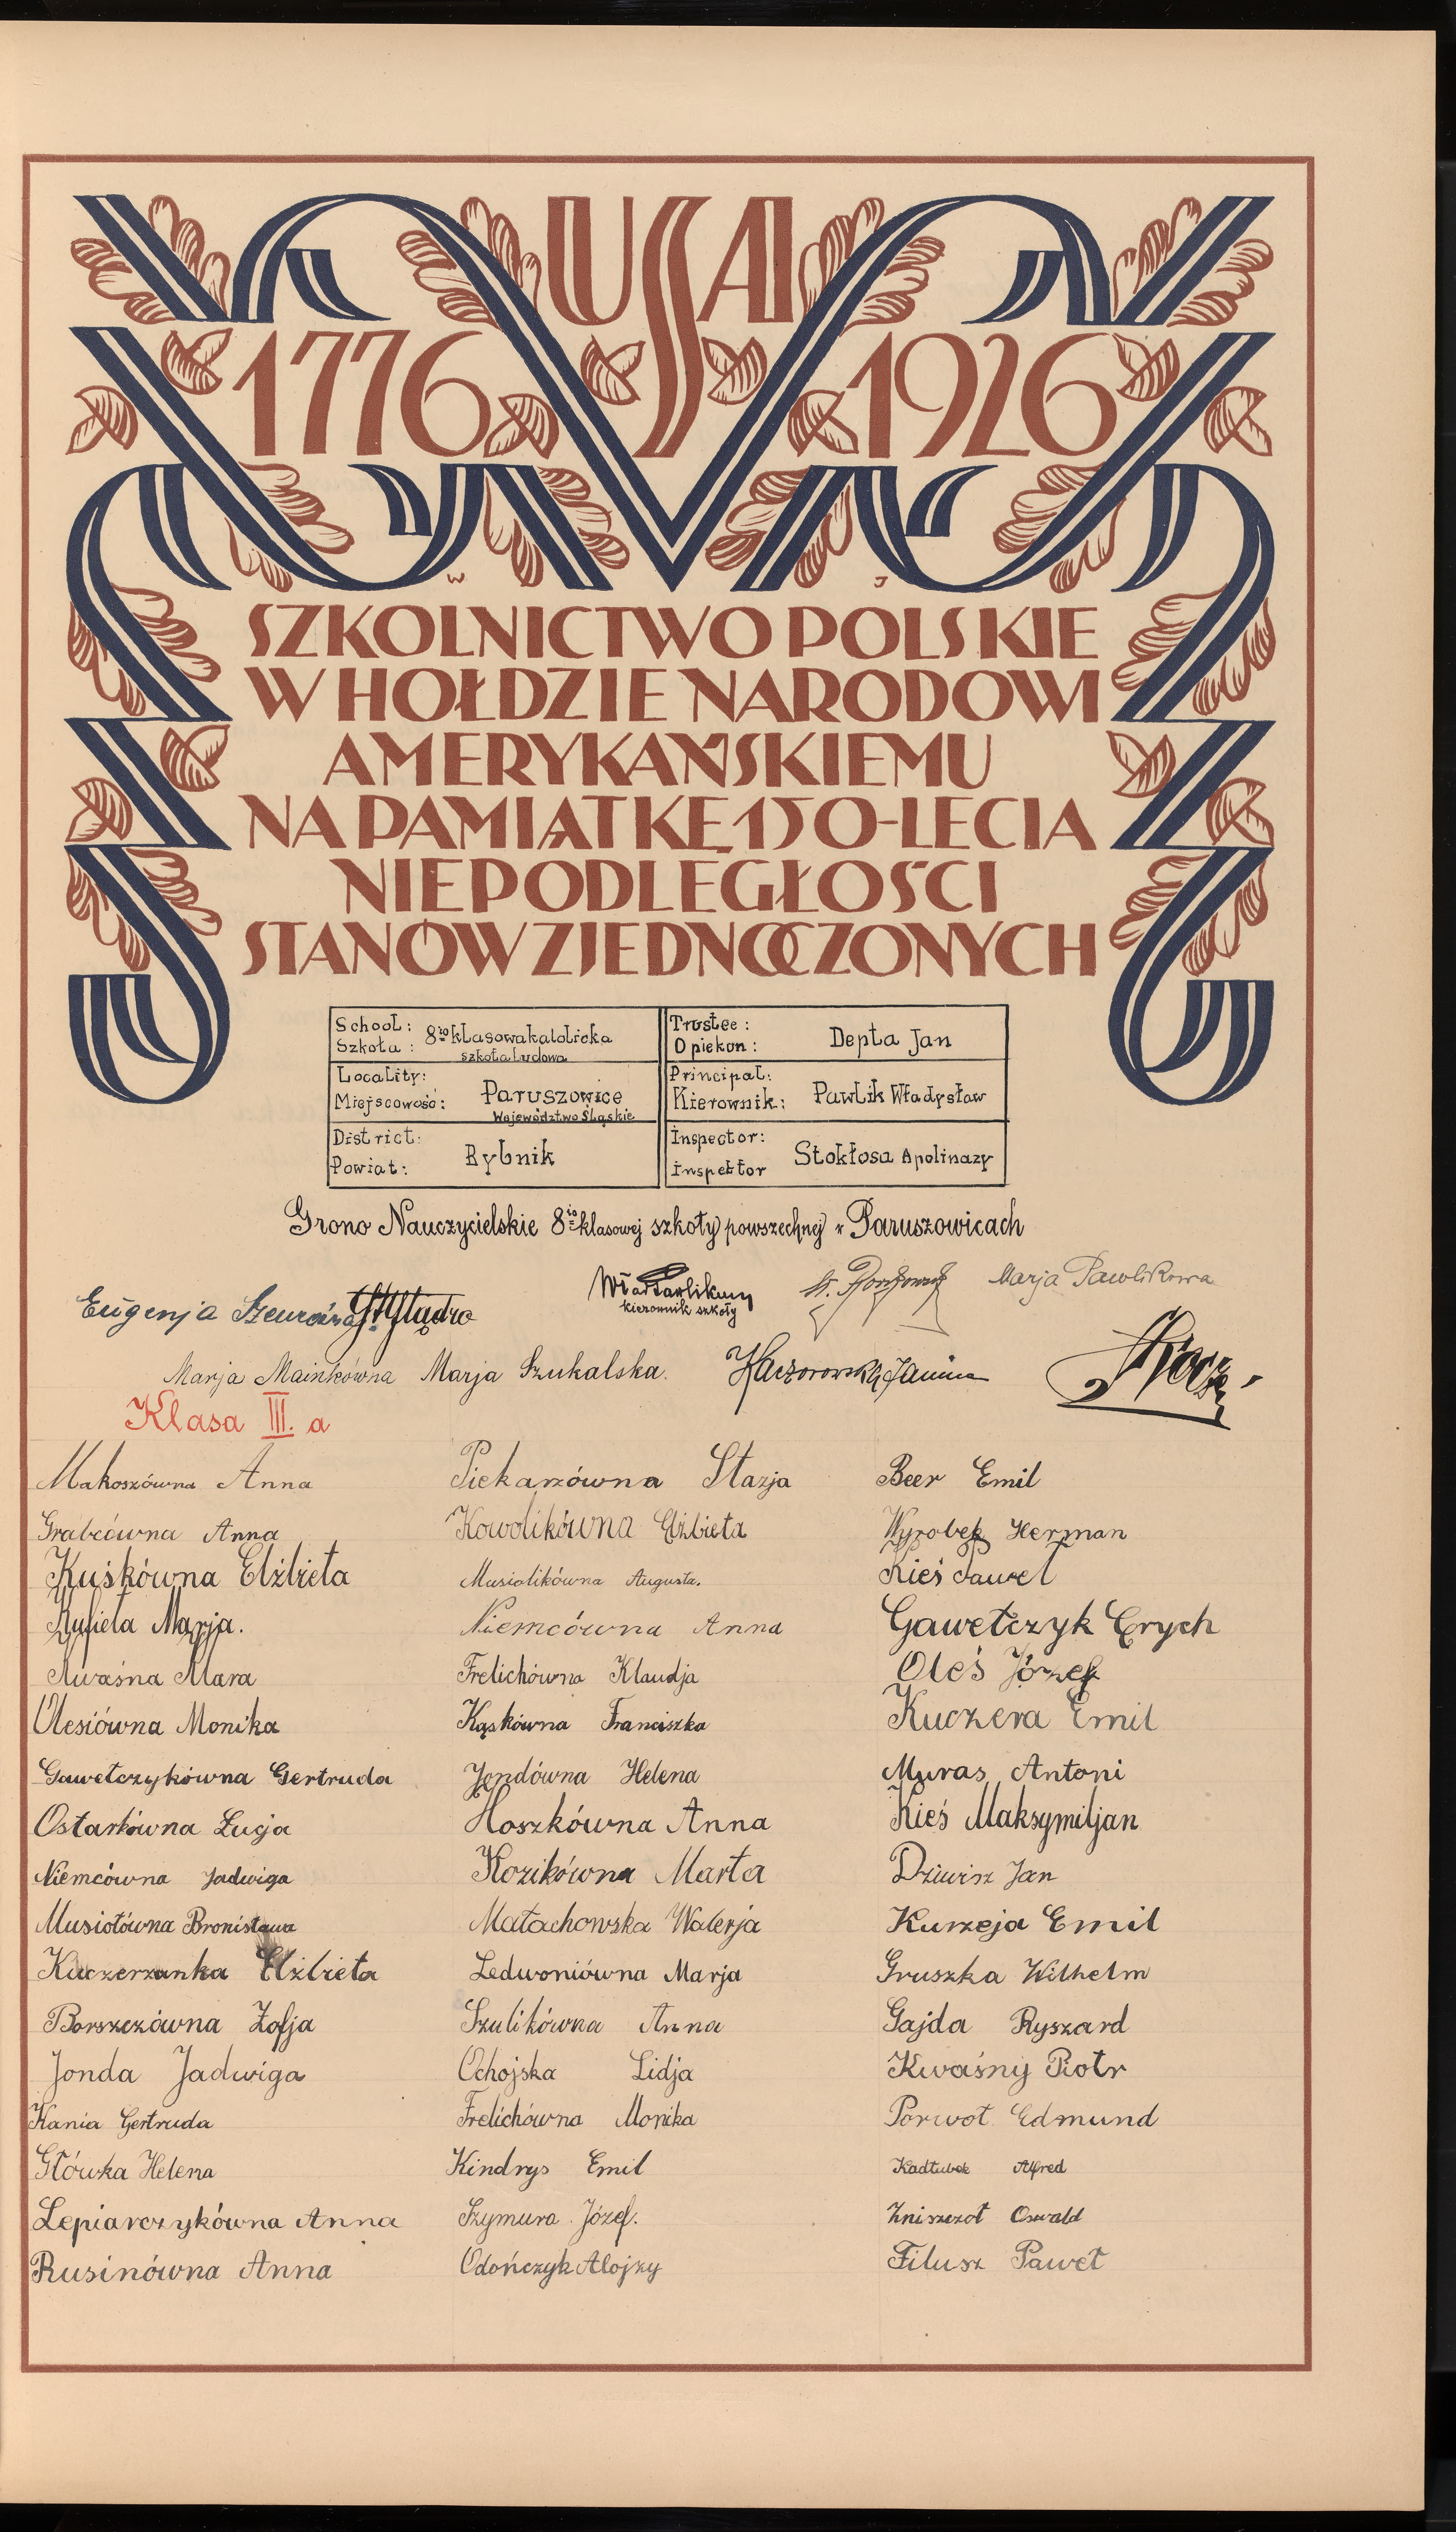 USA
1776 1926
W J
SZKOLNICTWO POLSKIE
W HOŁDZIE NARODOWI
AMERYKAŃSKIEMU
NA PAMIĄTKĘ 150-LECIA
NIEPODLEGŁOŚCI
STANÓW ZJEDNOCZONYCH
School: Szkoła: 8io klasowa katolicka
szkoła ludowa
Trustee: Opiekun: Depta Jan
Locality: Miejscowość: Paruszowice
Województwo Śląskie
Principal: Kierownik: Pawlik Władysław
District: Powiat: Rybnik
Inspector: Inspektor Stokłosa Apolinazy
Grono Nauczycielskie 8io klasowej szkoły powszechnej w Paruszowicach
Wład Pawlik
kierownik szkoły
Marja Pawlikowa
Eugenja
Marja Mainkówna Marja Szukalska. Kaczorowska Janina
Klasa III. a
Makoszówna Anna Piekarzówna Stazja Beer Emil
Grabcówna Anna Kowolikówna Elżbieta Wyrobek Herman
Kuśkówna Elżbieta Musiolikówna Augusta. Kieś Paweł
Kufieta Marja. Niemcówna Anna Gawełczyk Erych
Kwaśna Mara Frelichówna Klaudja Oleś Józef
Olesiówna Monika Kąskówna Franciszka Kuczera Emil
Gawełczykówna Gertruda Jondówna Helena Muras Antoni
Ostarkówna Łucja Hoszkówna Anna Kieś Maksymiljan
Niemcówna Jadwiga Kozikówna Marta Dziwisz Jan
Musiołówna Bronisława Małachowska Walerja Kurzeja Emil
Kuczerzanka Elżbieta Ledwoniówna Marja Gruszka Wilhelm
Borszczówna Zofja Szulikówna Anna Gajda Ryszard
Jonda Jadwiga Ochojska Lidja Kwaśny Piotr
Kania Gertruda Frelichówna Monika Porwoł Edmund
Główka Helena Kindrys Emil Kadłubek Alfred
Lepiarczykówna Anna Szymura Józef. Zniszczoł Oswald
Rusinówna Anna Odończyk Alojzy Filusz Paweł